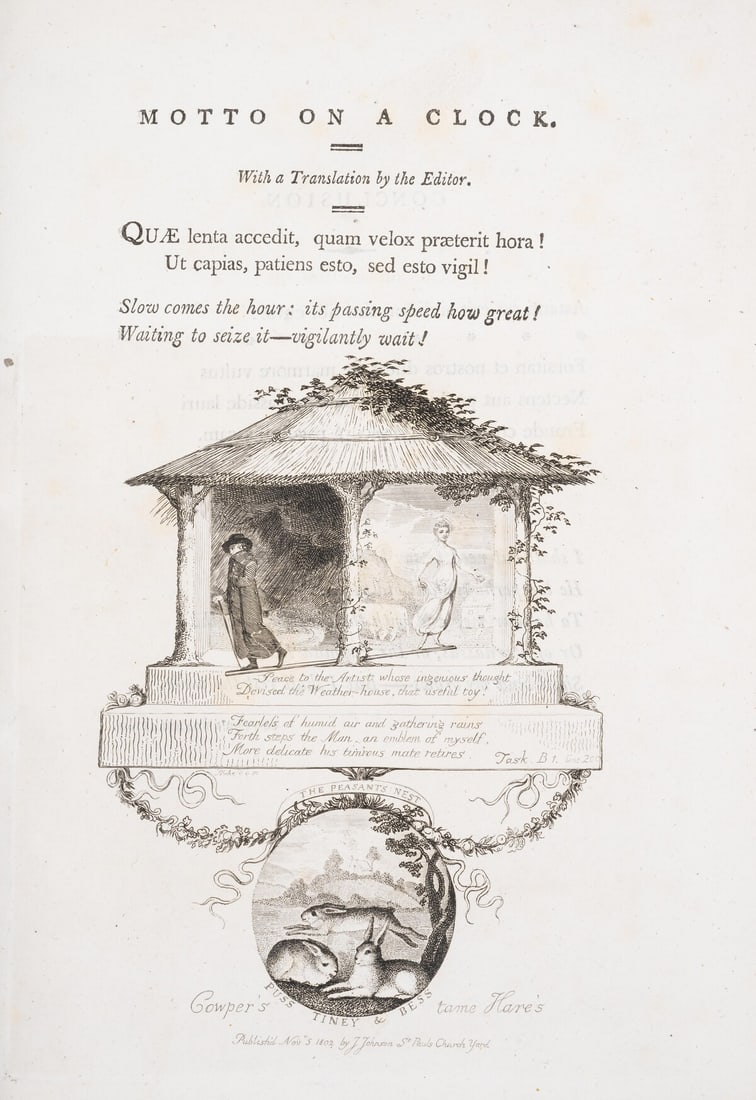 MOTTO ON A CLOCK.
With a Translation by the Editor.
QUÆ lenta accedit, quam velox præterit hora!
Ut capias, patiens esto, sed esto vigil!
Slow comes the hour: its passing speed how great!
Waiting to seize it—vigilantly wait!
Peace to the Artist, whose ingenious thought
Devised the Weather-house, that useful toy!
Fearless of humid air and gathering rains
Forth steps the Man, an emblem of myself,
More delicate his timorous mate retires.
Task. B 1.
THE PEASANTS NEST
PUSS TINEY & BESS
Cowper's tame Hare's
Publish'd Nov.r 5 1802 by J. Johnson St Pauls Church Yard